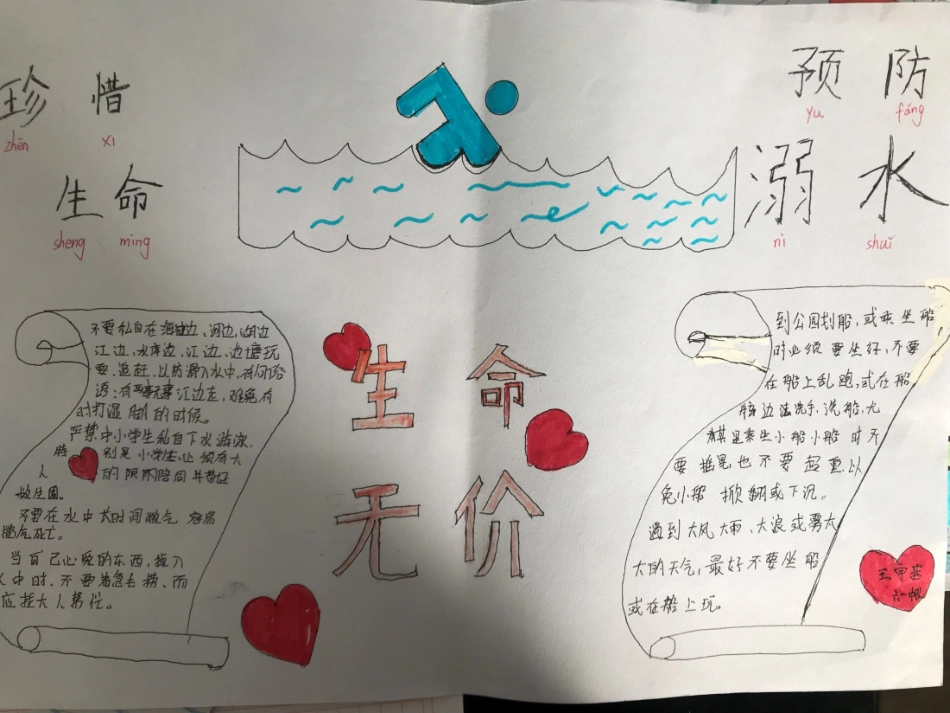 珍惜
zhēn xī
生命
sheng ming
预防
yu fáng
溺水
ni shuǐ
不要私自在海边、河边、湖边
江边、水库边、江边、边塘玩
耍、追赶、以防滑入水中。有句俗
语:有事无事江边走,难免有
时打湿脚的时候。
严禁中小学生私自下水游泳.
特别是小学生让须有大
人的陪同并带好
救生圈。
不要在水中长时间憋气 容易
憋气死亡。
当自己心爱的东西,掉入
水中时.不要着急去捞.而
应找大人帮忙。
生命
无价
到公园划船,或乘坐船
时必须要坐好,不要
在船上乱跑,或在船
边洗手、洗船,尤
其是乘坐小船小船时不
要摇晃也不要超重以
免小船掀翻或下沉。
遇到大风大雨、大浪或雾太
大的天气,最好不要坐船
或在船上玩。